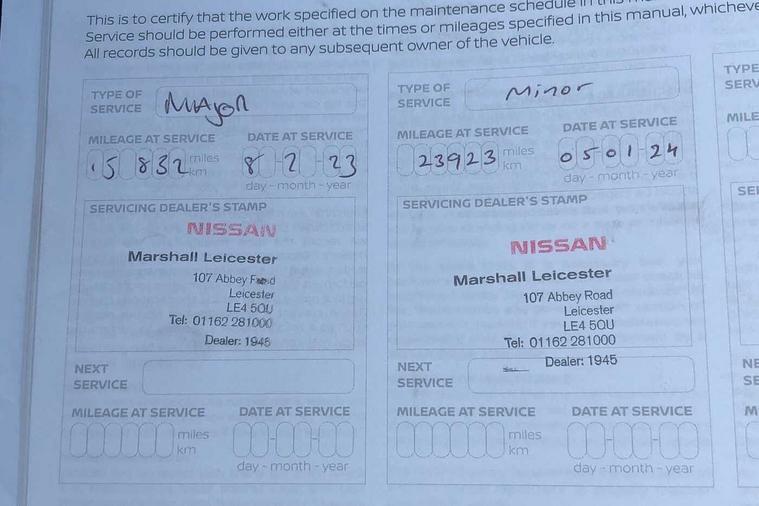 This is to certify that the work specified on the maintenance schedule in this
Service should be performed either at the times or mileages specified in this manual, whicheve
All records should be given to any subsequent owner of the vehicle.
TYPE OF SERVICE Major
MILEAGE AT SERVICE DATE AT SERVICE
15 832 miles km 8-2-23
day - month - year
SERVICING DEALER'S STAMP
NISSAN
Marshall Leicester
107 Abbey
Leicester
LE4 5QU
Tel: 01162 281000
Dealer: 1945
NEXT SERVICE
MILEAGE AT SERVICE DATE AT SERVICE
miles km
day - month - year
TYPE OF SERVICE Minor
MILEAGE AT SERVICE DATE AT SERVICE
23923 miles km 05-01-24
day - month - year
SERVICING DEALER'S STAMP
NISSAN
Marshall Leicester
107 Abbey Road
Leicester
LE4 5QU
Tel: 01162 281000
Dealer: 1945
NEXT SERVICE
MILEAGE AT SERVICE DATE AT SERVICE
miles km
day - month - year
TYPE
SERV
MILE
SE
NE
SE
M